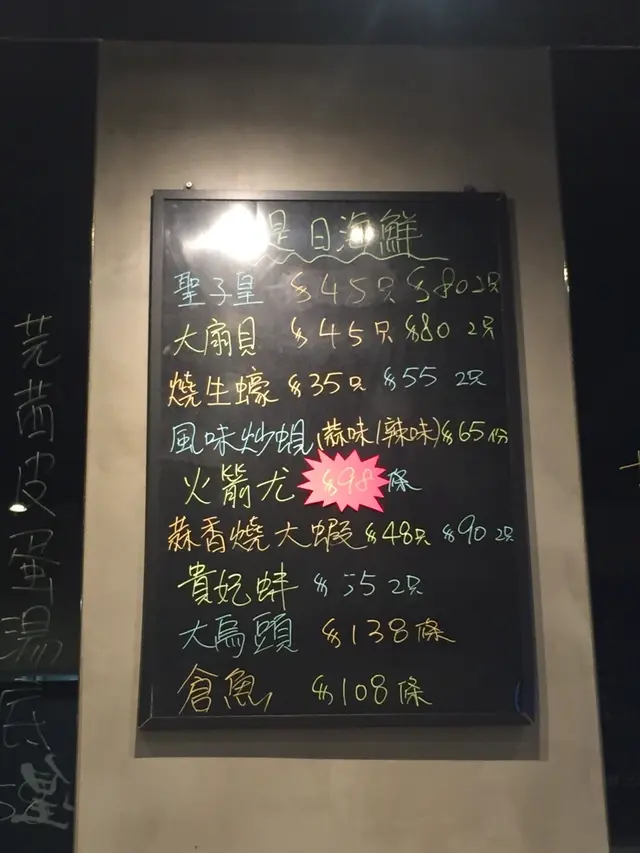 是日海鮮
聖子皇 $45只 $80 2只
大扇貝 $45只 $80 2只
燒生蠔 $35只 $55 2只
風味炒蜆(蒜味/辣味)$65份
火箭尤 $98條
蒜香燒大蝦 $48只 $90 2只
貴妃蚌 $55 2只
大烏頭 $138條
倉魚 $108條
芫茜皮蛋湯底